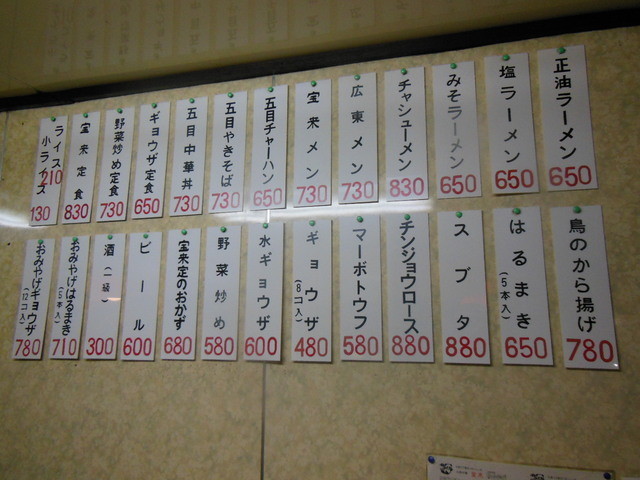 正油ラーメン 650
塩ラーメン 650
みそラーメン 650
チャシューメン 830
広東メン 730
宝来メン 730
五目チャーハン 650
五目やきそば 730
五目中華丼 730
ギョウザ定食 650
野菜炒め定食 730
宝来定食 830
ライス 210
小ライス 130
鳥のから揚げ 780
はるまき(5本入) 650
スブタ 880
チンジョウロース 880
マーボトウフ 580
ギョウザ(8コ入) 480
水ギョウザ 600
野菜炒め 580
宝来定のおかず 680
ビール 600
酒(一級) 300
おみやげはるまき(5本入) 710
おみやげギョウザ(12コ入) 780